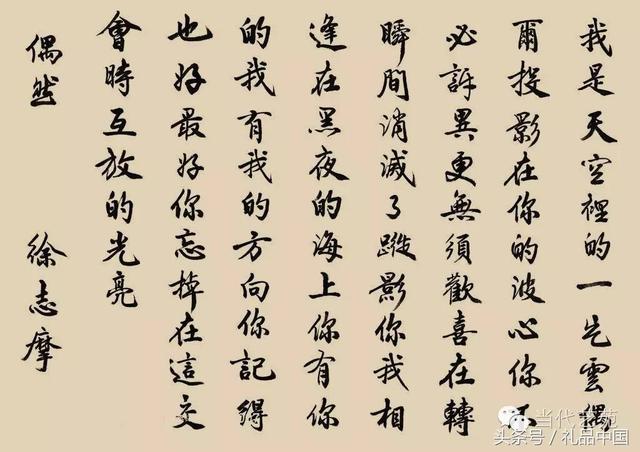 我是天空裡的一片雲偶
爾投影在你的波心你不
必訝異更無須歡喜在轉
瞬間消滅了蹤影你我相
逢在黑夜的海上你有你
的我有我的方向你記得
也好最好你忘掉在這交
會時互放的光亮
偶然 徐志摩
当代书苑
头条号／礼品中国